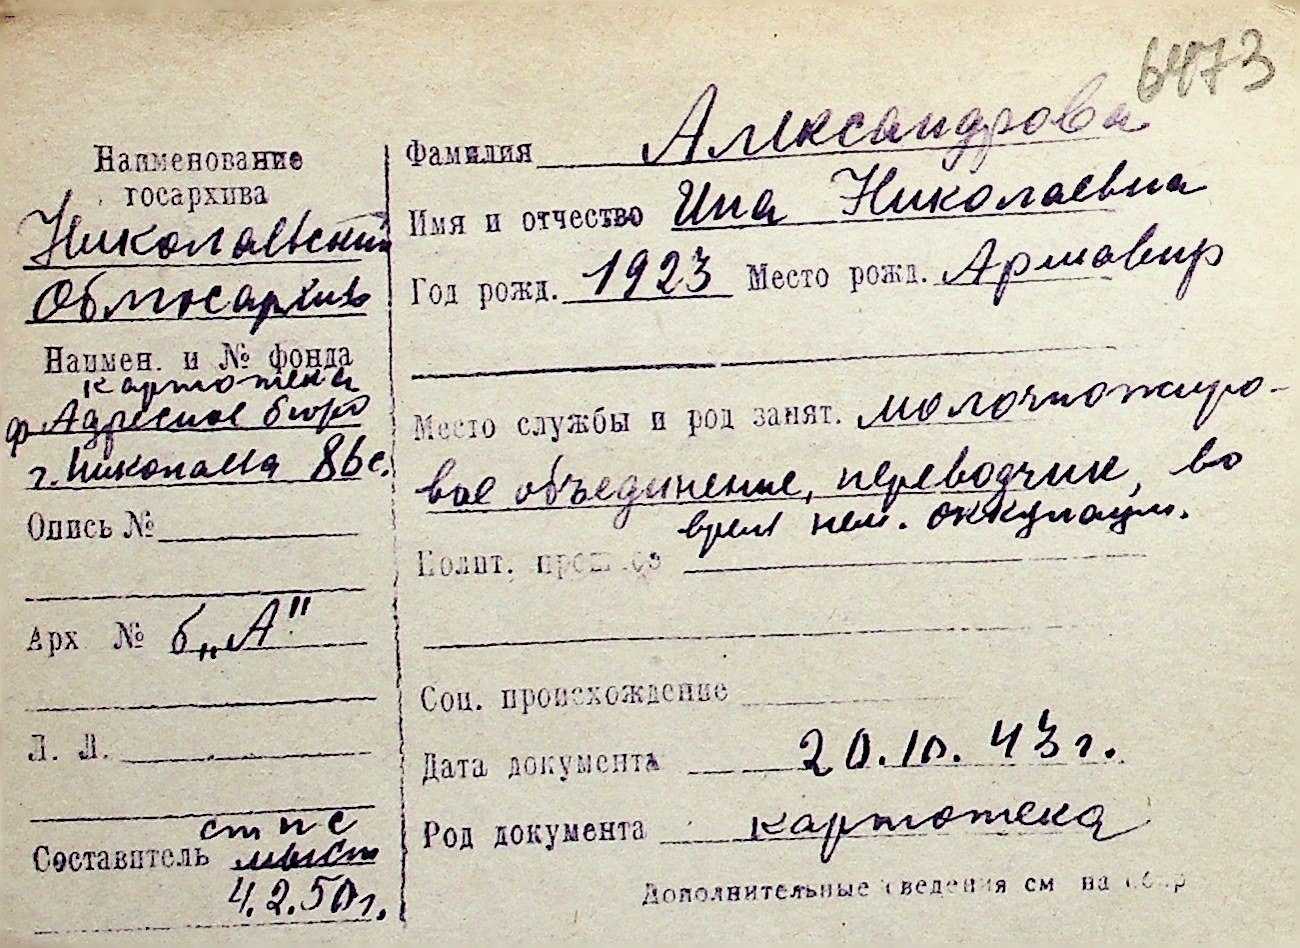 6473
Наименование
госархива
Николаевский
Облгосархив
Наимен. и № фонда
картотека
ф. Адресное бюро
г. Николаева 86с.
Опись №
Арх № б "А"
Л. Л.
Составитель
4.2.50г.
Фамилия Александрова
Имя и отчество Инна Николаевна
Год рожд. 1923 Место рожд. Армавир
Место службы и род занят. молочножиро-
вое объединение, переводчик, во
время нем. оккупации.
Полит. прошлое
Соц. происхождение
Дата документа 20.10.43г.
Род документа картотека
Дополнительные сведения см на обор